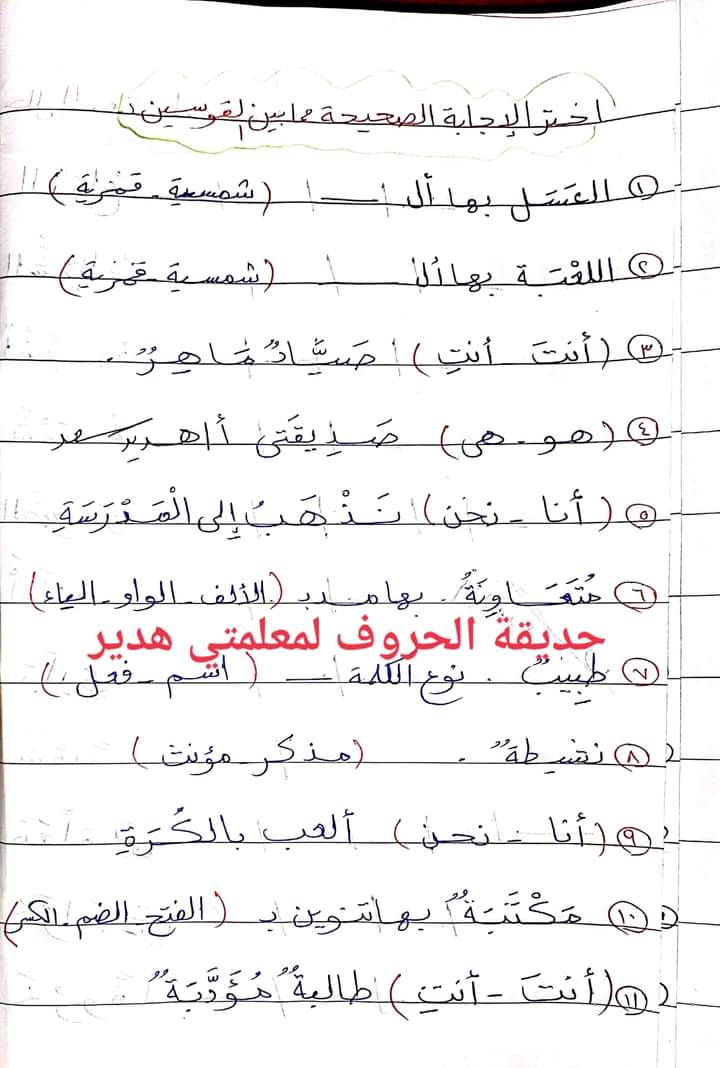 اختر الإجابة الصحيحة مما بين القوسين :
١ العَسَل بها أل ـــــ (شمسية - قمرية)
٢ اللعْبَة بها أل ـــــ (شمسية - قمرية)
٣ (أنتَ أنتِ) صَيَّادٌ مَاهِرٌ .
٤ (هو - هى) صَدِيقَتى
٥ (أنا - نحن) نَذْهَبُ إِلى الْمَدْرَسَةِ
٦ مُتَعَاوِنَةٌ . بها مد بـ (الألف - الواو - الياء)
حديقة الحروف لمعلمتي هدير
٧ طَبِيبٌ . نوع الكلمة ـــ (اسم - فعل)
٨ نشيطةٌ . (مذكر - مؤنث)
٩ (أنا - نحن) ألعب بالكُرَةِ
١٠ مَكْتَبَةٌ بها تنوين بـ (الفتح - الضم - الكسر)
١١ (أنتَ - أنتِ) طالبةٌ مُؤَدَّبَةٌ .